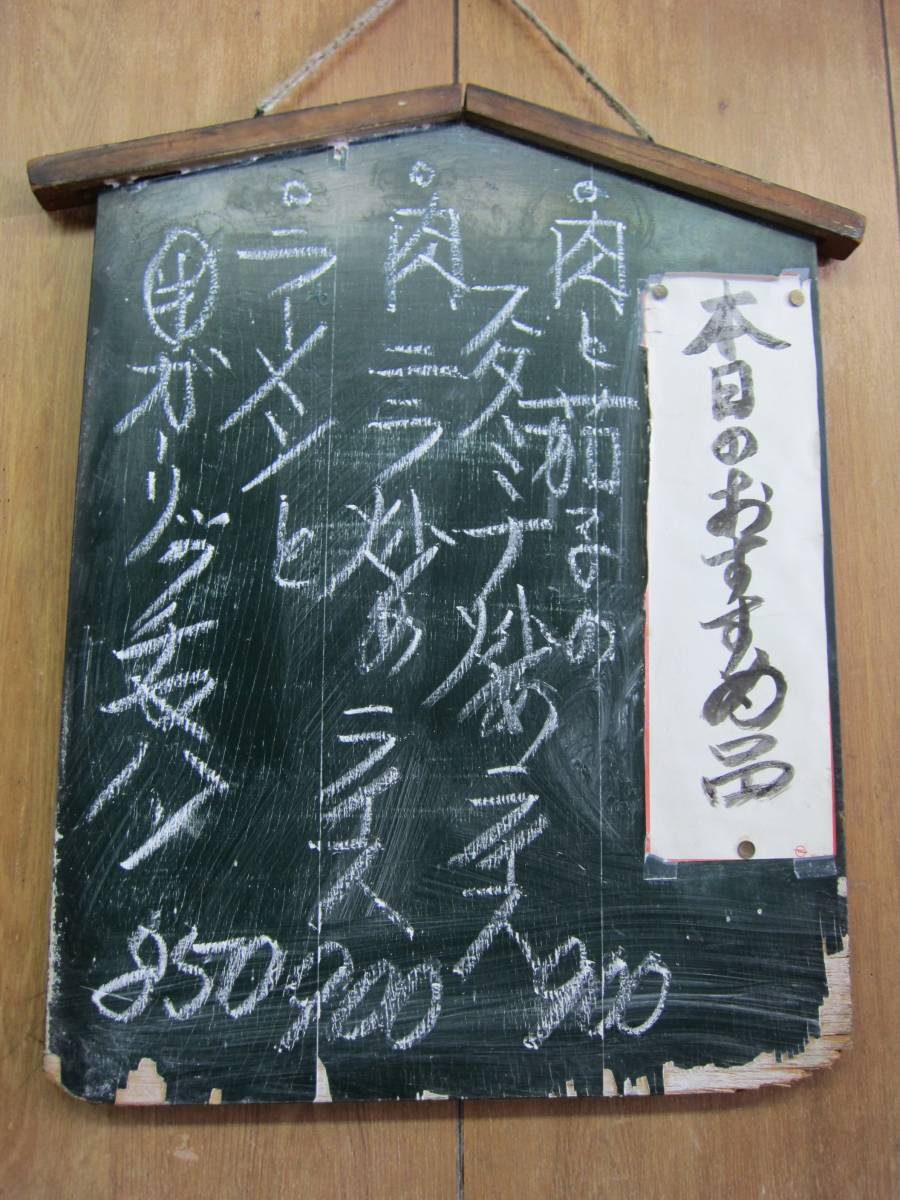 本日のおすすめ品
。肉と茄子の
スタミナ炒め ライス 900
。肉ニラ炒め ライス 900
。ラーメンと
㊍ガーリック炙ハン 850